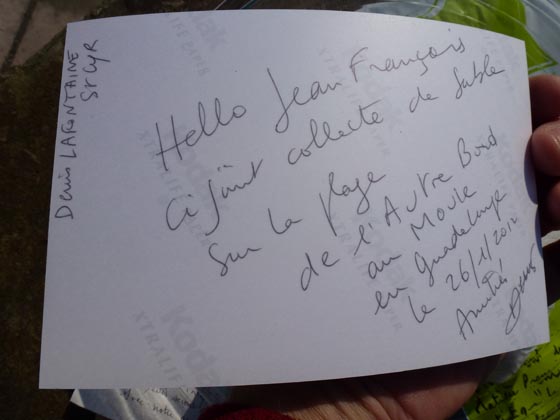 Denis LAFONTAINE
St Cyr
Hello Jean François
Ci joint collecte de sable
sur la plage
de l'Autre Bord
au Moule
en Guadeloupe
le 26/1/2012
Amitiés
Denis
Kodak
XTRALIFE PAPER
Kodak
XTRALIFE PAPER